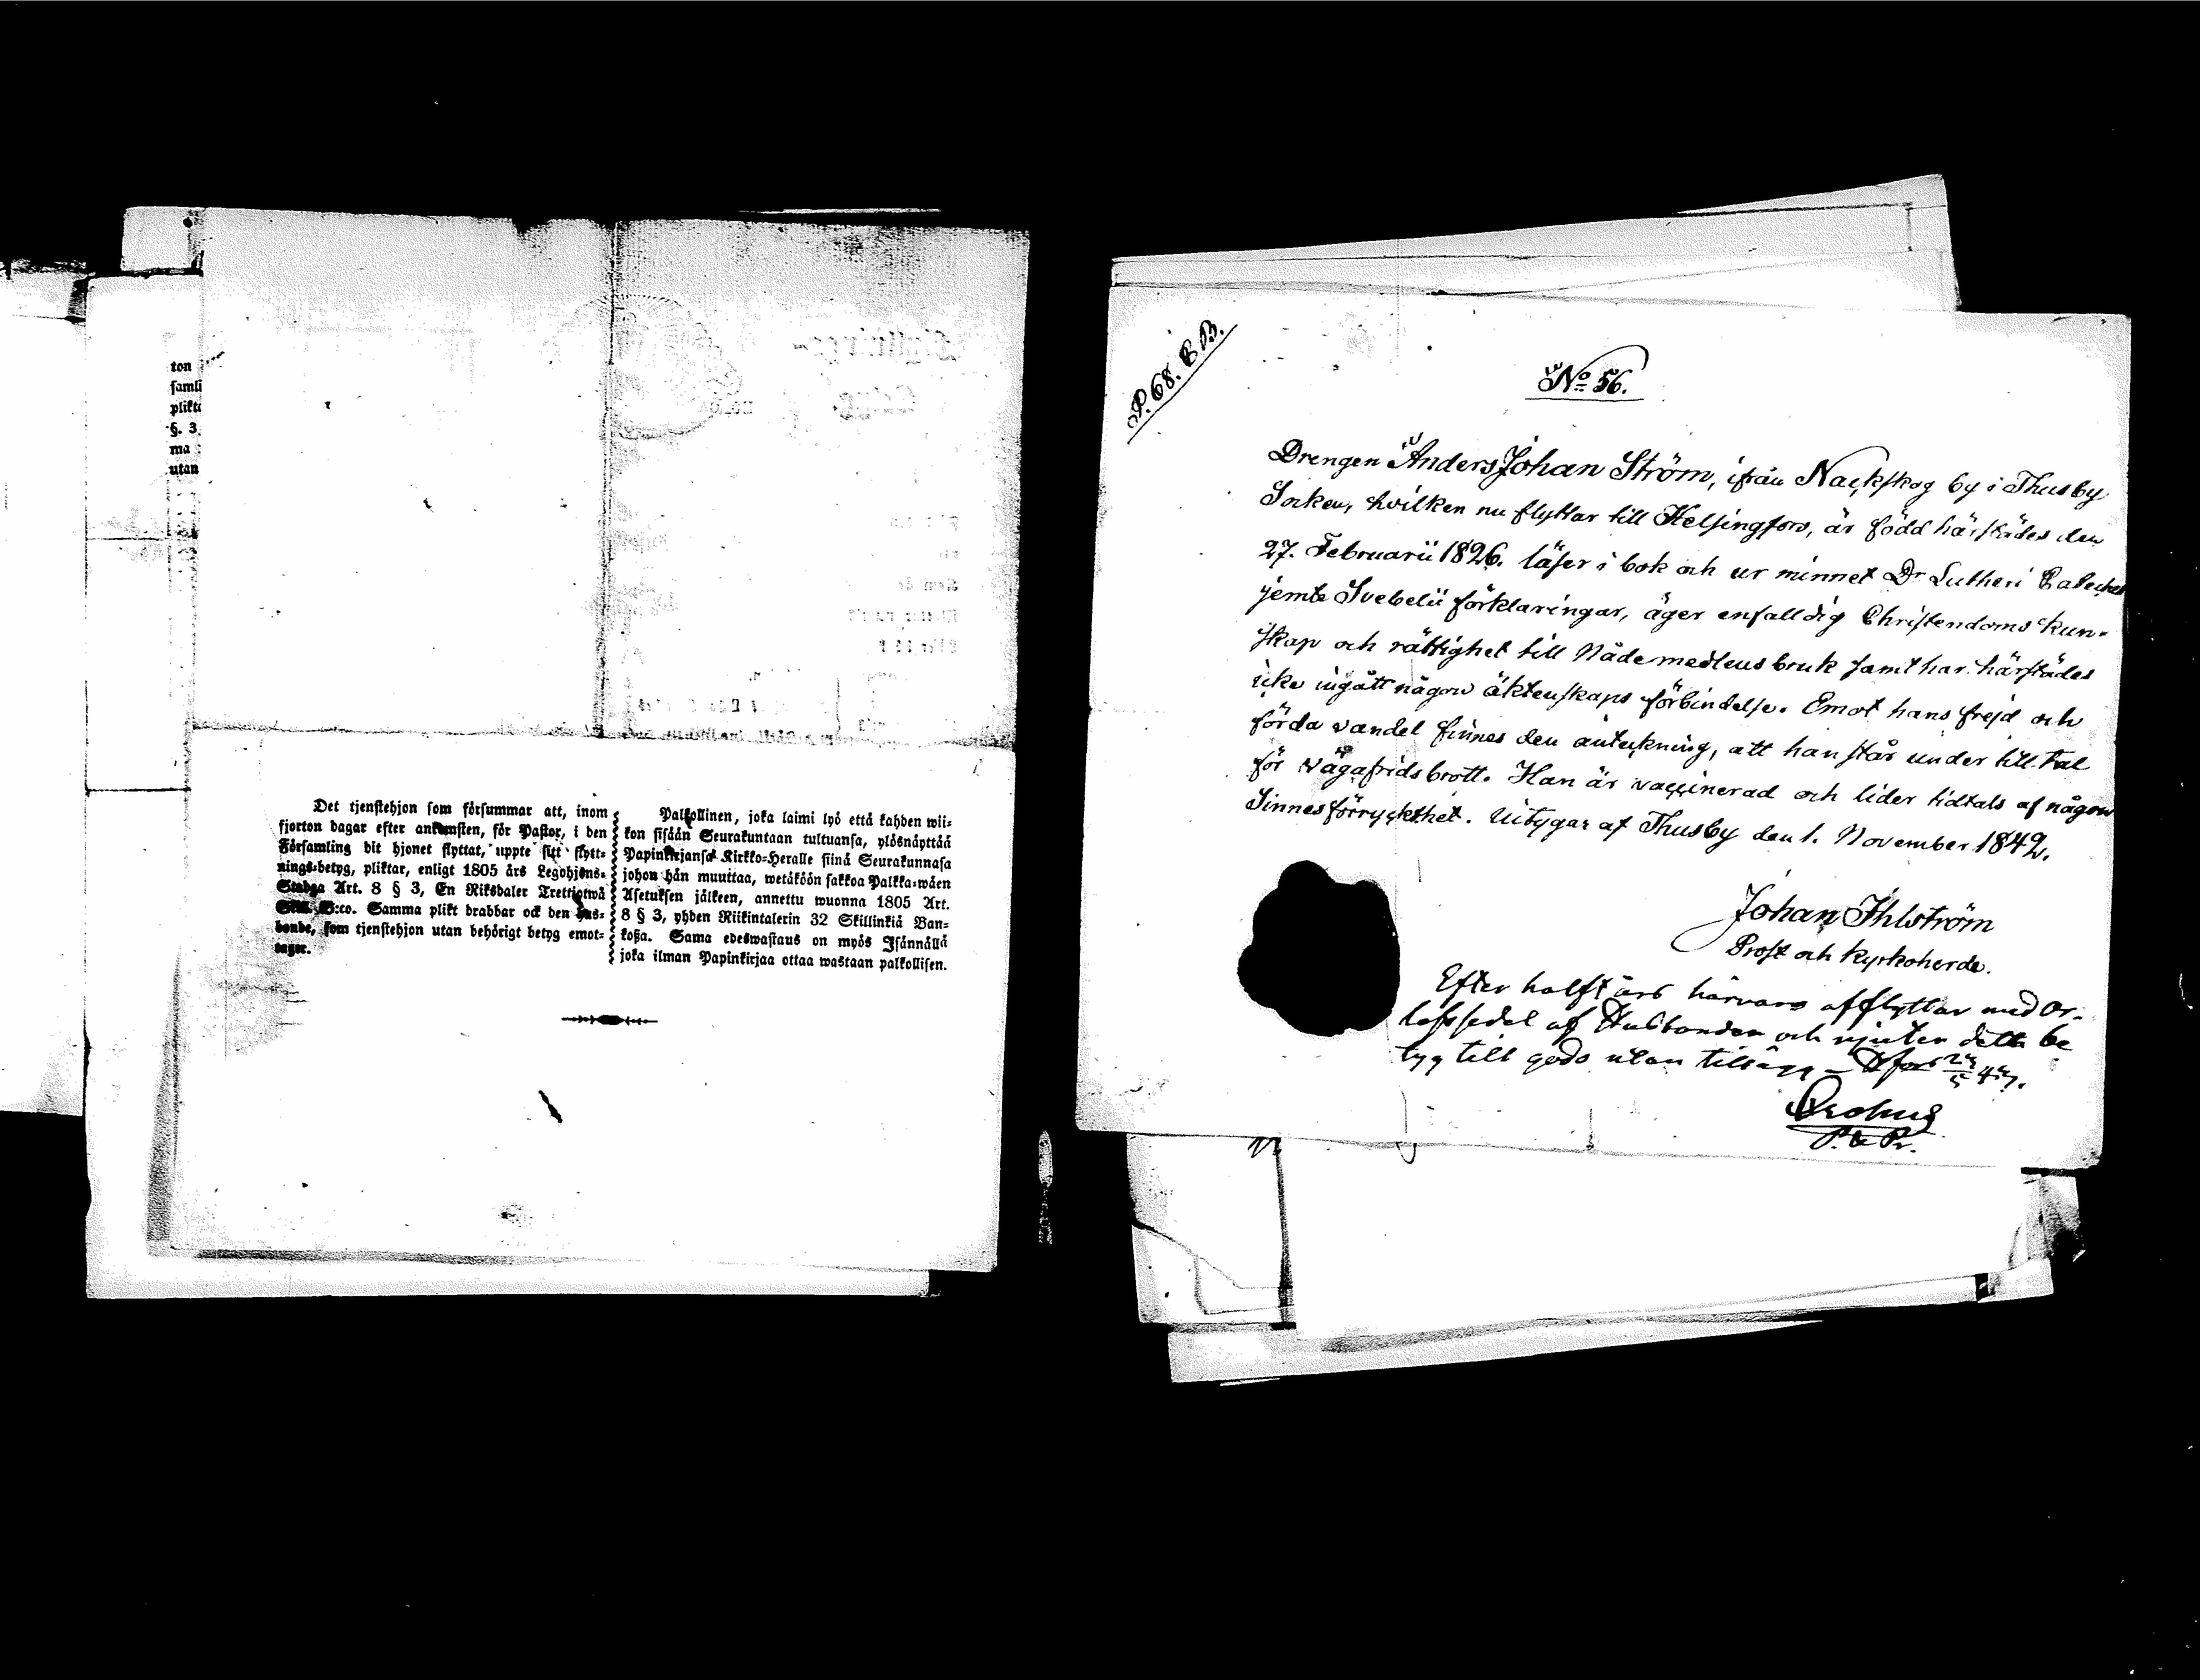 ton
samli
plikt
§. 3
ma
utan
Det tjenstehjon som försummar att, inom
fjorton dagar efter ankomsten, för Pastor, i den
Församling dit hjonet flyttat, uppte sitt flytt-
nings-betyg, pliktar, enligt 1805 års Legohjons-
Stadga Art. 8 § 3, En Riksdaler Trettiotwå
Skill. B:co. Samma plikt drabbar ock den hus-
bonde, som tjenstehjon utan behörigt betyg emot-
tager.
Palkollinen, joka laimi lyö että kahden wii-
kon sisään Seurakuntaan tultuansa, ylösnäyttää
Papinkirjansa Kirkko-Heralle siinä Seurakunnasa
johon hän muuttaa, wetäköön sakkoa Palkka-wäen
Asetuksen jälkeen, annettu wuonna 1805 Art.
8 § 3, yhden Riikintalerin 32 Skillinkiä Ban-
koßa. Sama edeswastaus on myös Isännällä
joka ilman Papinkirjaa ottaa wastaan palkollisen.
P. 68. B.B.
No 56.
Drengen Anders Johan Ström, ifrån Nackskog by i Thusby
Socken, hvilken nu flyttar till Helsingfors, är född härstädes den
27. Februarii 1826. läser i bok och ur minnet Dr Lutheri Cateches
jemte Svebelii förklaringar, äger enfalldig Christendoms kun-
skap och rättighet till Nådemedlens bruk samt har härstädes
icke ingått någon äktenskaps förbindelse. Emot hans frejd och
förda vandel finnes den anteckning, att han står under tilltal
för vägafridsbrott. Han är vaccinerad och lider tidtals af någon
Sinnesförryckthet. Utgar af Thusby den 1. November 1842.
Johan Ihlström
Prost och Kyrkoherde.
Efter halft års härvaro afflyttar med Or-
lofssedel af Husbonden och njuter detta be
tyg till godo utan tillägg – Hfors 43.
P.